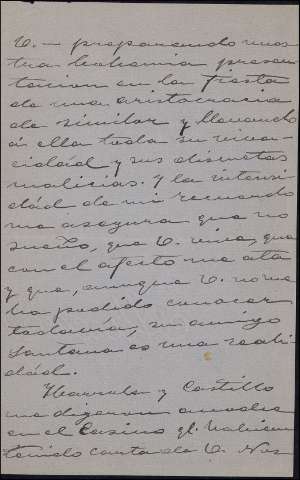 V. — preparando nues
tra bohemia presen
tacion en la fiesta
de una aristocracia
de similor y llevando
á ella toda su viva
cidad y sus discretas
malicias. Y la intensi
dád de mi recuerdo
me asegura que no
sueño, que V. vive, que
con el afecto me ata
y que, aunque V. no me
ha podido conocer
todavia, su amigo
Santana es una reali
dád.
y Castillo
me dijeron anoche
en el Casino qe. habian
tenido carta de V. Nos